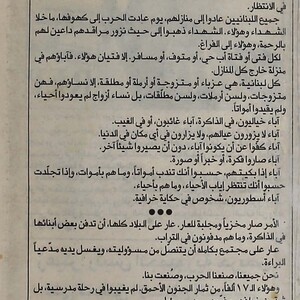 في الانتظار.
جميع اللبنانيين عادوا إلى منازلهم، يوم عادت الحرب إلى كهوفها، ما خلا
الشهداء وهؤلاء. الشهداء ذهبوا إلى حيث نزور مراقدهم داعين لهم
بالرحمة، وهؤلاء إلى الفراغ.
لكل فتى أو فتاة أب حي، أو متوف، أو مسافر. إلا فتيان هؤلاء. فآباؤهم في
منزلة خارج كل المنازل.
كل لبنانية، هي عزباء أو متزوجة أو أرملة أو مطلقة، إلا نساؤهم، فهن
متزوجات، ولسن أرملات، ولسن مطلّقات، بل نساء أزواج لم يعودوا أحياء،
ولم يقيدوا أمواتاً.
آباء خياليون، في الذاكرة، آباء غائبون، أو في الغيب.
آباء لا يزورون عيالهم، ولا يزارون في أي مكان في الدنيا.
آباء كفوا عن أن يكونوا آباء، دون أن يصيروا شيئاً آخر.
آباء صاروا فكرة، أو خبراً أو صورة.
آباء إذا بكيتهم، حسبوا أنك تندب أمواتاً، وما هم بأموات، وإذا تجلّدت
حسبوا أنك تنتظر إياب الأحياء، وما هم بأحياء.
آباء أسطوريون، شخوص في حكاية خرافية.
●●●
الأمر صار مخزياً ومجلبة للعار. عار على البلاد كلها، أن تدفن بعض أبنائها
في الذاكرة، وما هم مدفونون في التراب.
عار على مجتمع بكامله أن يتنصل من مسؤوليته، ويغسل يديه مدّعياً
البراءة.
نحن جميعنا، صنعنا الحرب، وصنّعت بنا.
وهؤلاء الـ١٧ ألفاً، من ثمار الجنون الأحمق. لم يغيبوا في رحلة مدرسية، بل